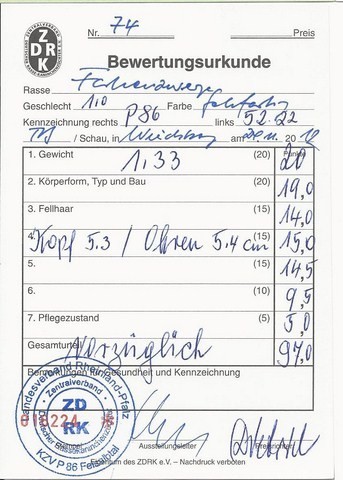 ZENTRALVERBAND
ZDRK
Nr. 74 Preis
Bewertungsurkunde
Rasse Farbenzwerge
Geschlecht 1,0 Farbe
Kennzeichnung rechts P86 links 5.2.22
/ Schau, in am 20
1. Gewicht 1,33 (20) Punkte 20
2. Körperform, Typ und Bau (20) 19,0
3. Fellhaar (15) 14,0
4. Kopf 5.3 / Ohren 5.4 cm (15) 15,0
5. (15) 14,5
6. (10) 9,5
7. Pflegezustand (5) 5,0
Gesamturteil Vorzüglich 97,0
Bemerkungen für Gesundheit und Kennzeichnung
Landesverband Rheinland-Pfalz
Zentralverband
ZD
RK
010224
KZV P 86 Felsalbtal
Stempel Ausstellungsleiter Preisrichter
Eigentum des ZDRK e.V. – Nachdruck verboten